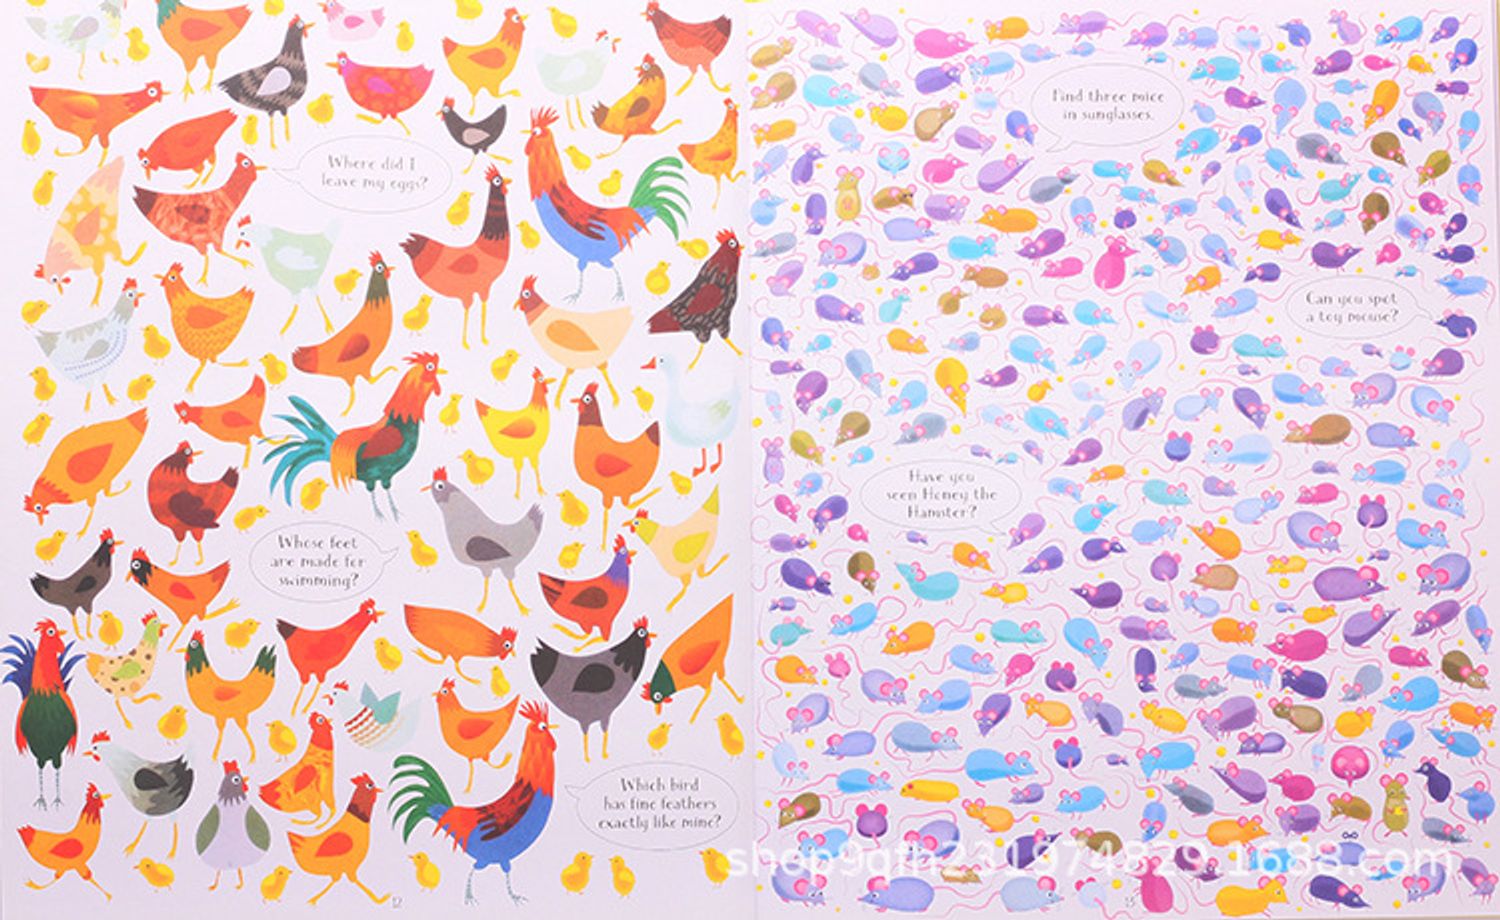 Where did I
leave my eggs?
Whose feet
are made for
swimming?
Which bird
has fine feathers
exactly like mine?
12
Find three mice
in sunglasses.
Can you spot
a toy mouse?
Have you
seen Honey the
Hamster?
13
shop9qth231974829.1688.com